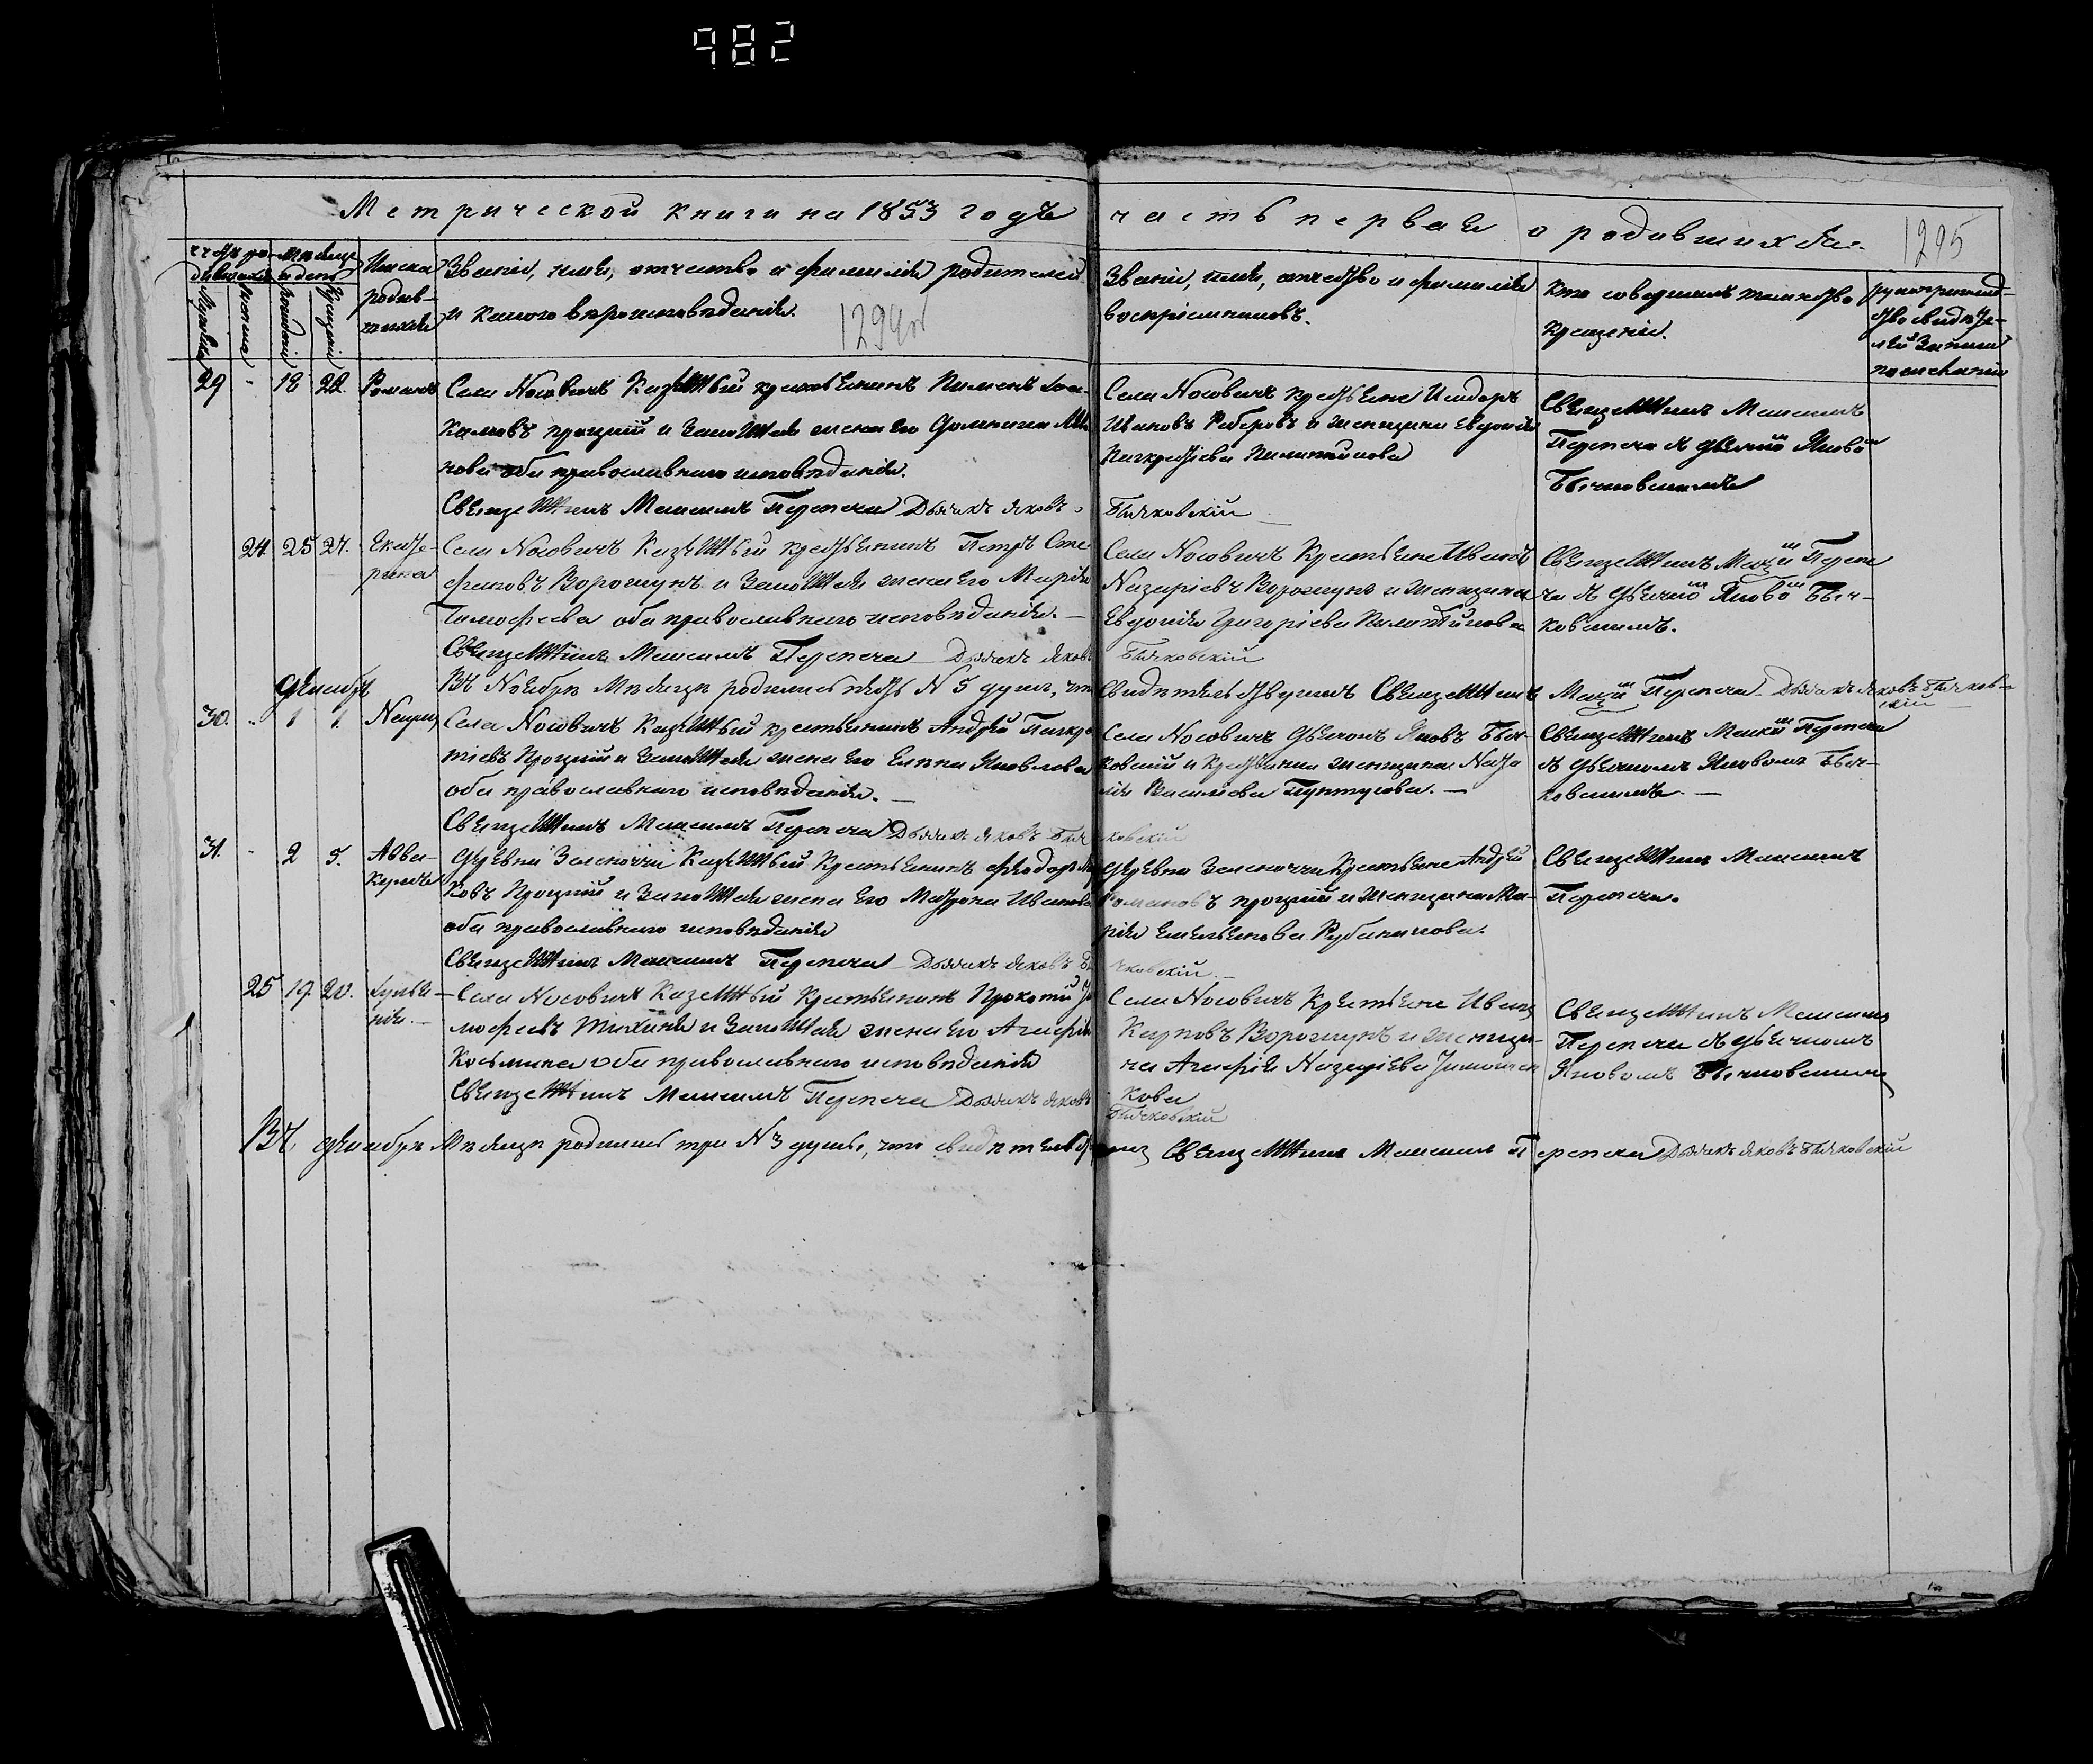 982
Метрической книги на 1853 годъ часть первая о родившихся.
1295
Имена родив-шихся
Званіе, имя, отчество и фамилія родителей
и какого вѣроисповѣданія.
1294об
Званіе, имя, отчество и фамилія
воспріемниковъ.
Кто совершалъ таинство
крещенія.
29 - 18 22. Романъ
Села Носовичъ Казенный крестьянинъ Пименъ
Процкій и законная жена его
оба православнаго исповѣданія.
Священникъ Максимъ Перепеча Дьячекъ Яковъ Бычковскій
Села Носовичъ крестьяне Исидоръ
Ивановъ и женщина Евдокія
Священникъ Максимъ
Перепеча съ дьячкомъ Яковомъ
Бычковскимъ
24. 25 27. Екате-
рина
Села Носовичъ Казенный крестьянинъ Петръ Сте-
фановъ Ворожунъ и законная жена его Марія
Тимофеева оба православнаго исповѣданія. —
Священникъ Максимъ Перепеча Дьячекъ Яковъ Бычковскій
Села Носовичъ Крестьяне Иванъ
Назаріевъ Ворожунъ и женщина
Евдокія Григоріева
Священникъ Макѣ Перепе-
ча съ дьячкѣ Яковѣ Быч-
ковскимъ.
Въ Ноябрѣ Мѣсяцѣ родились пять N 5 душъ, что свидѣтельствуемъ Священникъ Макѣ Перепеча Дьячекъ Яковъ Бычков-
скій
Декабрь
30. " 1 1. Наумъ
Села Носовичъ Казенный крестьянинъ Андрей Панкра-
тіевъ Процкій и законная жена его Елена Яковлева
оба православнаго исповѣданія. —
Священникъ Максимъ Перепеча Дьячекъ Яковъ Бычковскій
Села Носовичъ Дьячокъ Яковъ Быч-
ковскій и Крестьянка женщина Ната-
лія Василіева Пунтусова. —
Священникъ Макѣ Перепеча
съ дьячкомъ Яковомъ Быч-
ковскимъ. —
31. - 2 5. Авва-
кумъ
Деревни Зеленочи Казенный Крестьянинъ Феодоръ
Процкій и Законная жена его Матрона Иванова
оба православнаго исповѣданія
Священникъ Максимъ Перепеча Дьячекъ Яковъ Бычковскій. —
Деревни Зеленочи Крестьяне Андрей
Романовъ Процкій и Женщина Ма-
рія Емельянова Рубаникова.
Священникъ Максимъ
Перепеча.
25 19 20. Іулiа-
нія. —
Села Носовичъ Казенный Крестьянинъ Прокопій Ти-
мофеевъ Тихиня и Законная жена его Агафія
Косьмина оба православнаго исповѣданія
Священникъ Максимъ Перепеча Дьячекъ Яковъ Бычковскій
Села Носовичъ Крестьяне Иванъ
Карповъ Ворожунъ и Женщи-
на Агафія Назаріева
Священникъ Максимъ
Перепеча съ дьячкомъ
Яковомъ Бычковскимъ
Въ Декабрѣ Мѣсяцѣ родились три N 3 души, что свидѣтельствуемъ Священникъ Максимъ Перепеча Дьячекъ Яковъ Бычковскій